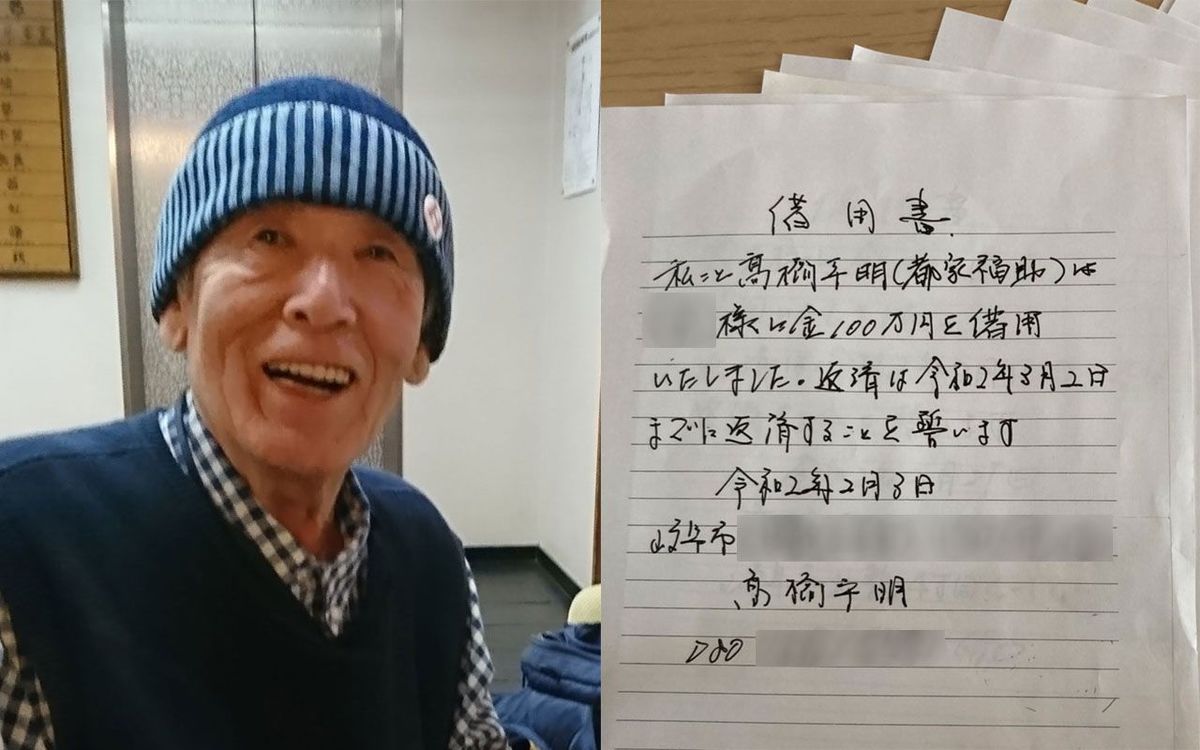 借用書
私こと高橋平明(都家福助)は
様に金100万円を借用
いたしました。返済は令和2年3月2日
までに返済することを誓います
令和2年2月3日
岐阜市
高橋平明
080